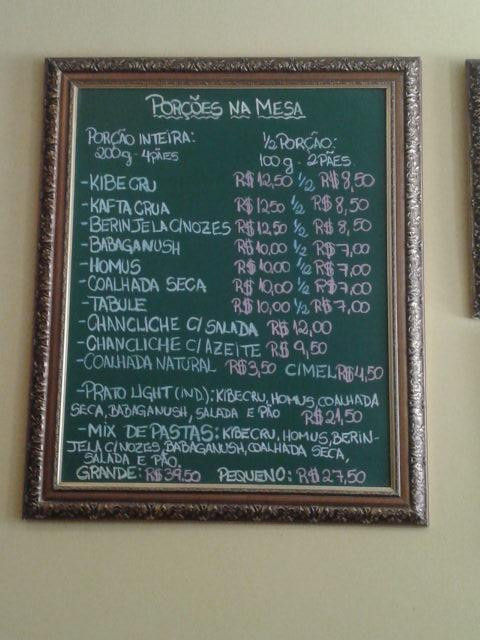 PORÇÕES NA MESA
PORÇÃO INTEIRA: 1/2 PORÇÃO:
200g - 4PÃES 100g - 2PÃES
-KIBE CRU R$12,50 1/2 R$8,50
-KAFTA CRUA R$1250 1/2 R$8,50
-BERINJELA C/NOZES R$12,50 1/2 R$8,50
-BABAGANUSH R$10,00 1/2 R$7,00
-HOMUS R$10,00 1/2 R$7,00
-COALHADA SECA R$10,00 1/2 R$7,00
-TABULE R$10,00 1/2 R$7,00
-CHANCLICHE C/ SALADA R$12,00
-CHANCLICHE C/AZEITE R$9,50
-COALHADA NATURAL R$3,50 C/MEL R$4,50
-PRATO LIGHT(IND):KIBECRU, HOMUS, COALHADA
SECA, BABAGANUSH, SALADA E PÃO R$21,50
-MIX DE PASTAS: KIBECRU, HOMUS, BERIN-
JELA C/NOZES, BABAGANUSH, COALHADA SECA,
SALADA E PÃO.
GRANDE: R$39,50 PEQUENO: R$27,50